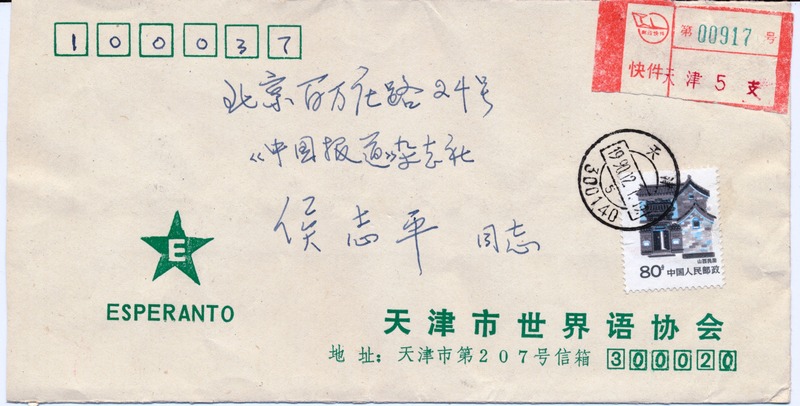 100037
第 00917 号
快件 天津 5 支
北京百万庄路24号
《中国报道》杂志社
侯志平 同志
天津
300140
E
ESPERANTO
山西民居
80分 中国人民邮政
天津市世界语协会
地址：天津市第207号信箱 300020